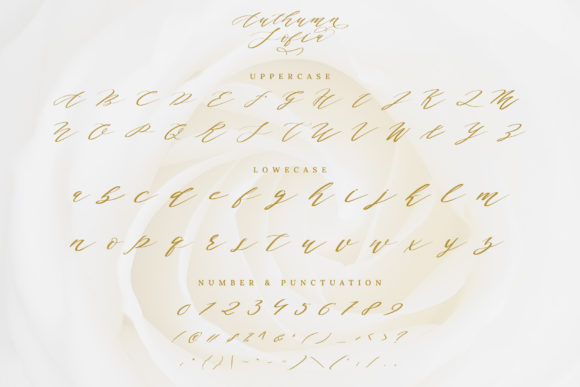 Authuma
Sofia
UPPERCASE
A B C D E F G H I J K L M
N O P Q R S T U V W X Y Z
LOWECASE
a b c d e f g h i j k l m
n o p q r s t u v w x y z
NUMBER & PUNCTUATION
0 1 2 3 4 5 6 7 8 9